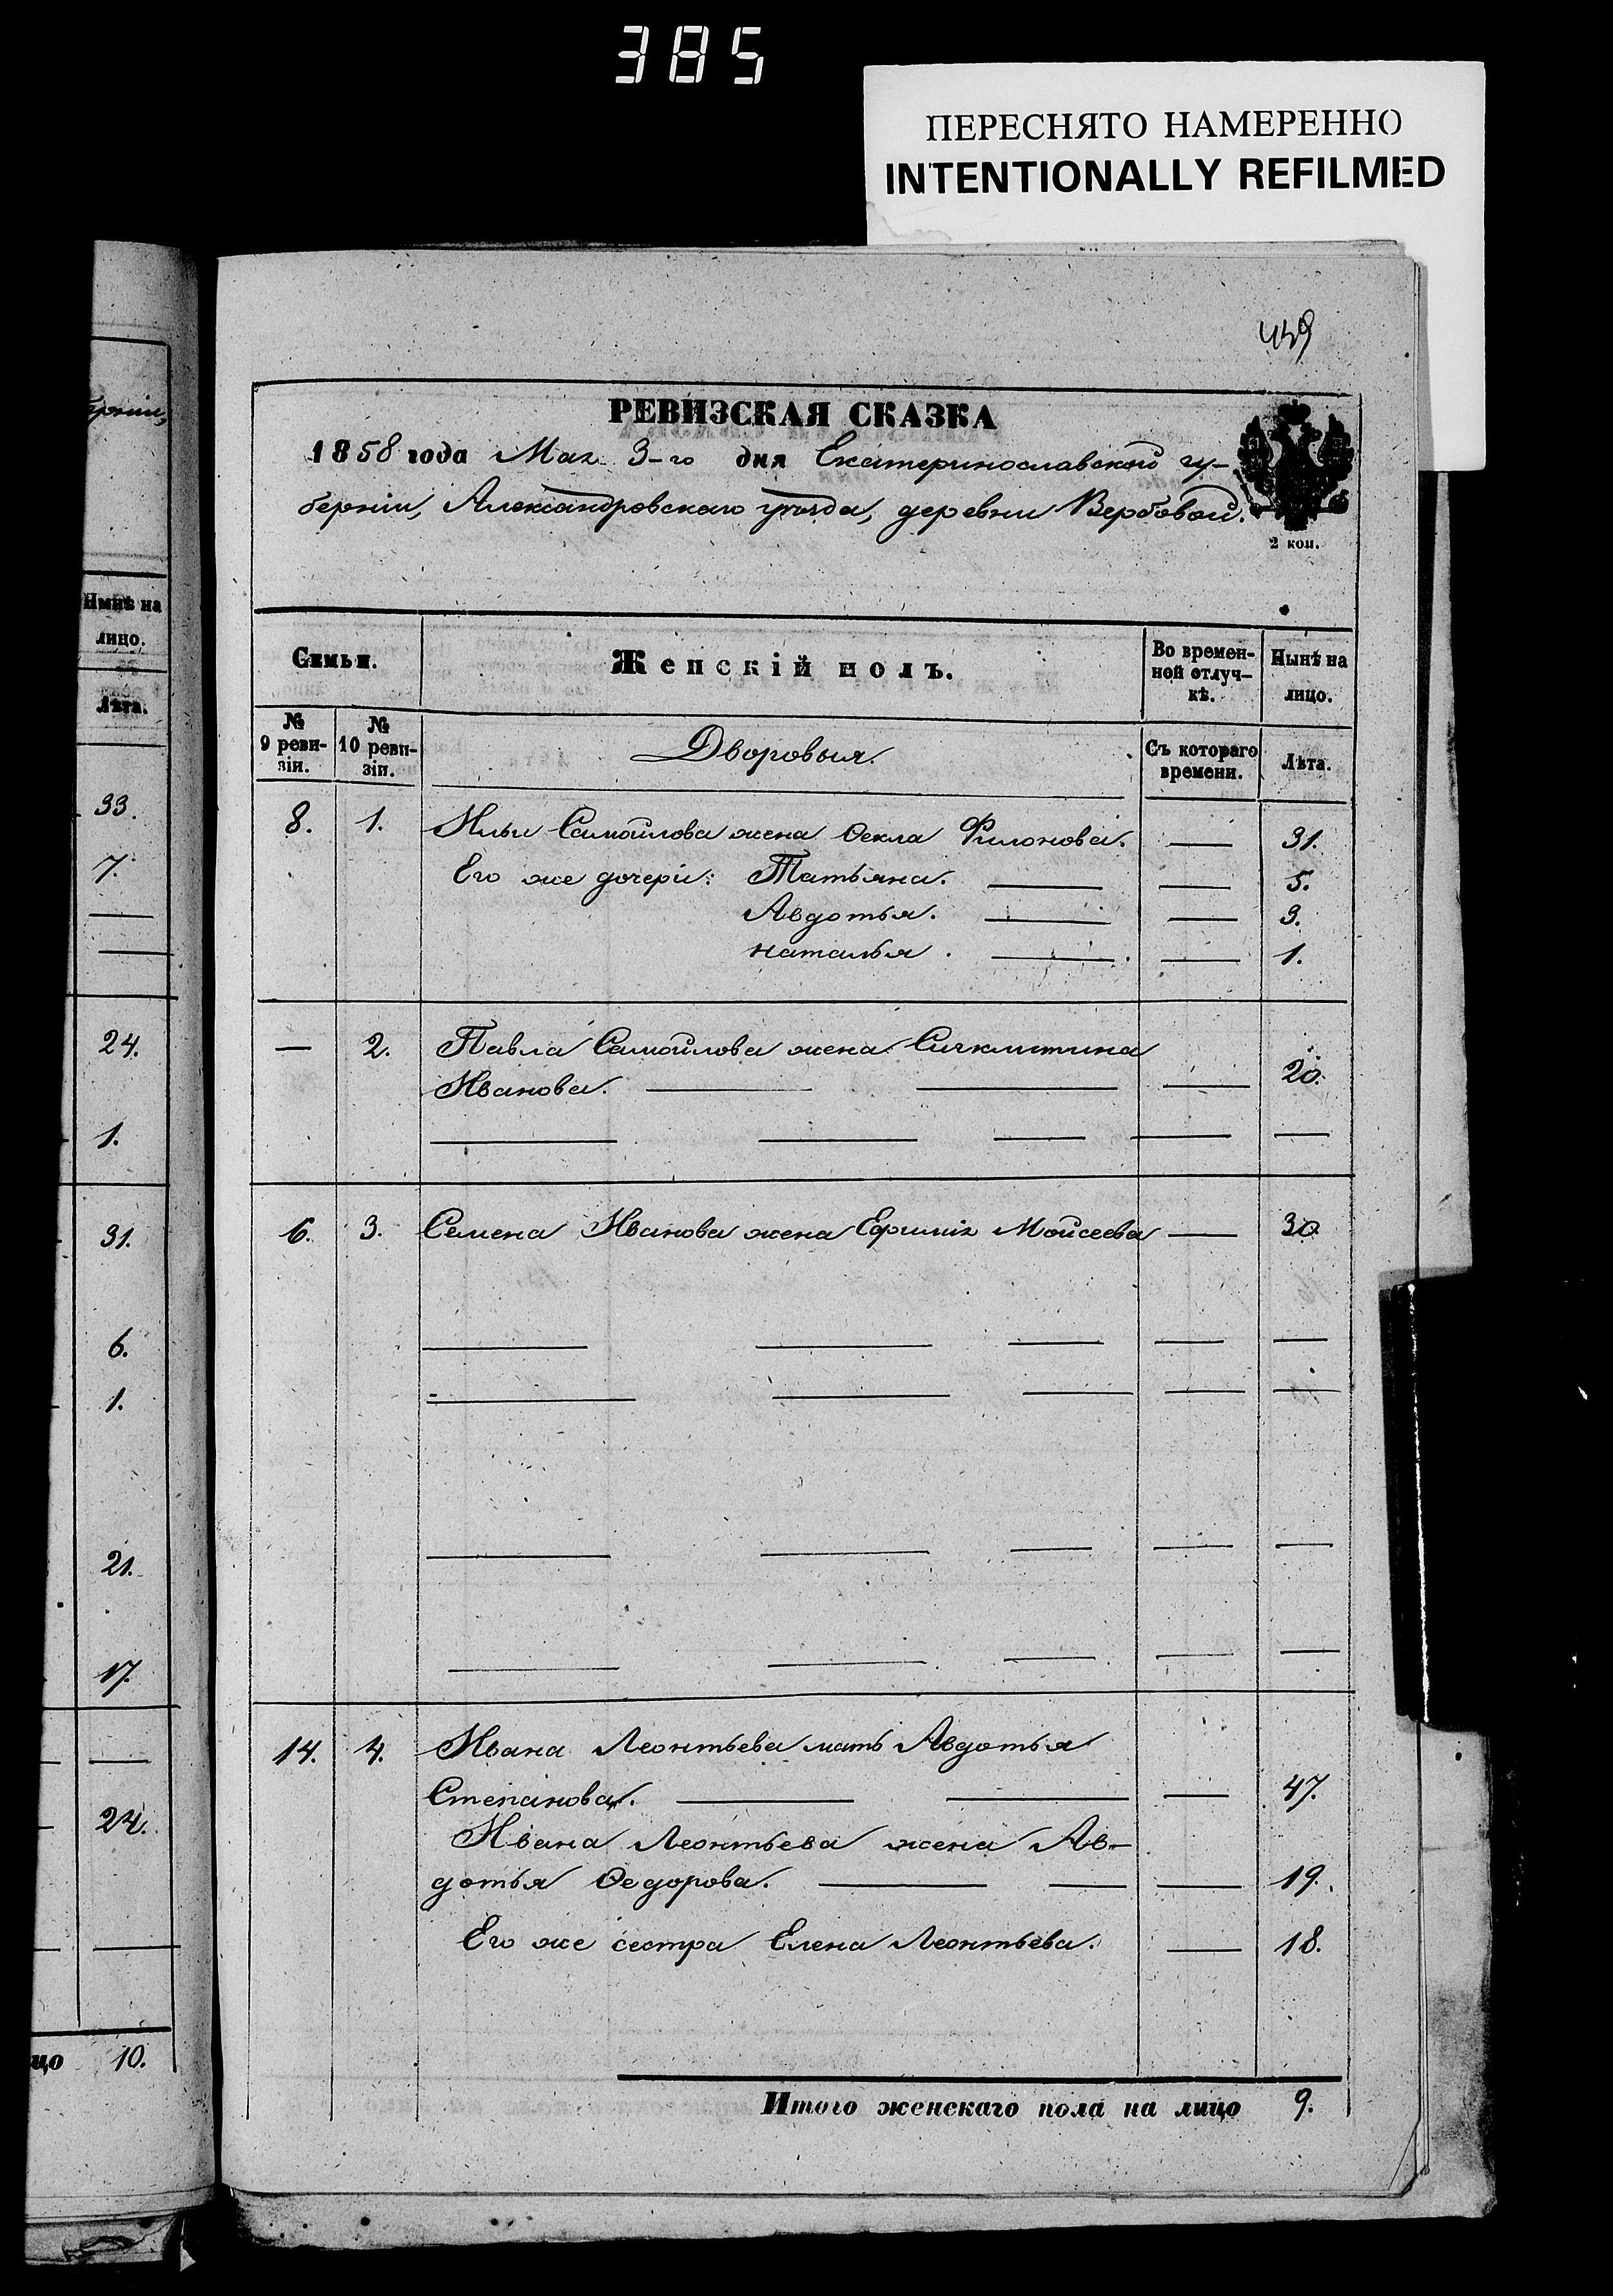 385
ПЕРЕСНЯТО НАМЕРЕННО
INTENTIONALLY REFILMED
439
РЕВИЗСКАЯ СКАЗКА
1858 года Мая 3-го дня Екатеринославской гу-
берніи, Александровскаго уѣзда, деревни Вербовой.
2 коп.
Семьи.
Женскій полъ.
Во времен-
ной отлуч-
кѣ.
Нынѣ на
лицо.
№
9 реви-
зіи.
№
10 реви-
зіи.
Дворовыя.
Съ котораго
времени.
Лѣта.
8. 1. Ильи Самойлова жена Ѳекла Филонова. — 31.
Его же дочери: Татьяна. — — 5.
Авдотья. — — 3.
Наталья. — — 1.
— 2. Павла Самойлова жена
Иванова. — — — 20.
6. 3. Семена Иванова жена Ефимія Мойсеева — 30
14. 4. Ивана Леонтьева мать Авдотья
Степанова. — — — 47.
Ивана Леонтьева жена Ав-
дотья Ѳедорова. — — — 19.
Его же сестра Елена Леонтьева. — 18.
Итого женскаго пола на лицо 9.
берніи,
Нынѣ на
лицо.
Лѣта.
33.
7.
24.
1.
31.
6.
1.
21.
17.
24.
цо 10.